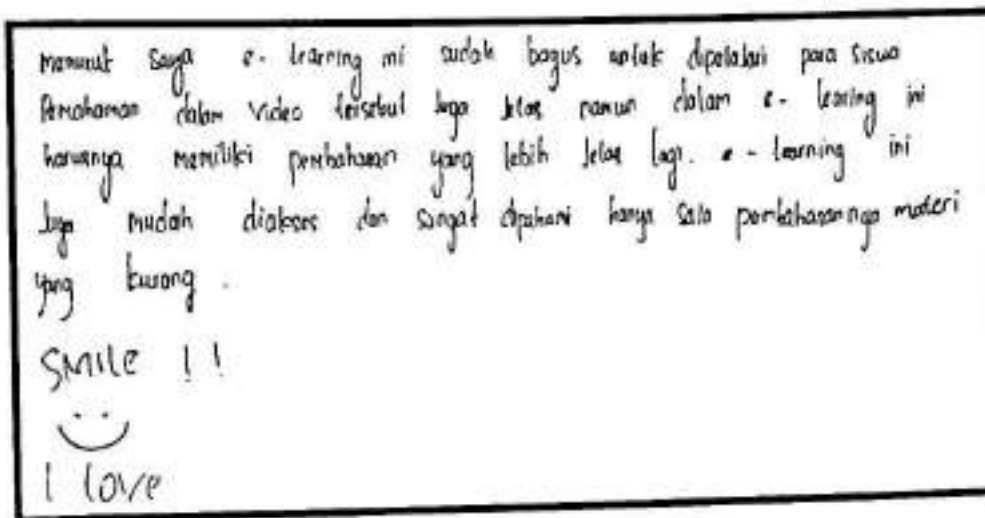 menurut saya e-learning ini sudah bagus untuk dipelajari para siswa
Pemahaman dalam video tersebut juga jelas namun dalam e-learing ini
harusnya memiliki pembahasan yang lebih jelas lagi. e-learning ini
Juga mudah diakses dan sangat dipahami hanya saja pembahasannya materi
yang kurang.
SMILE !!
I love